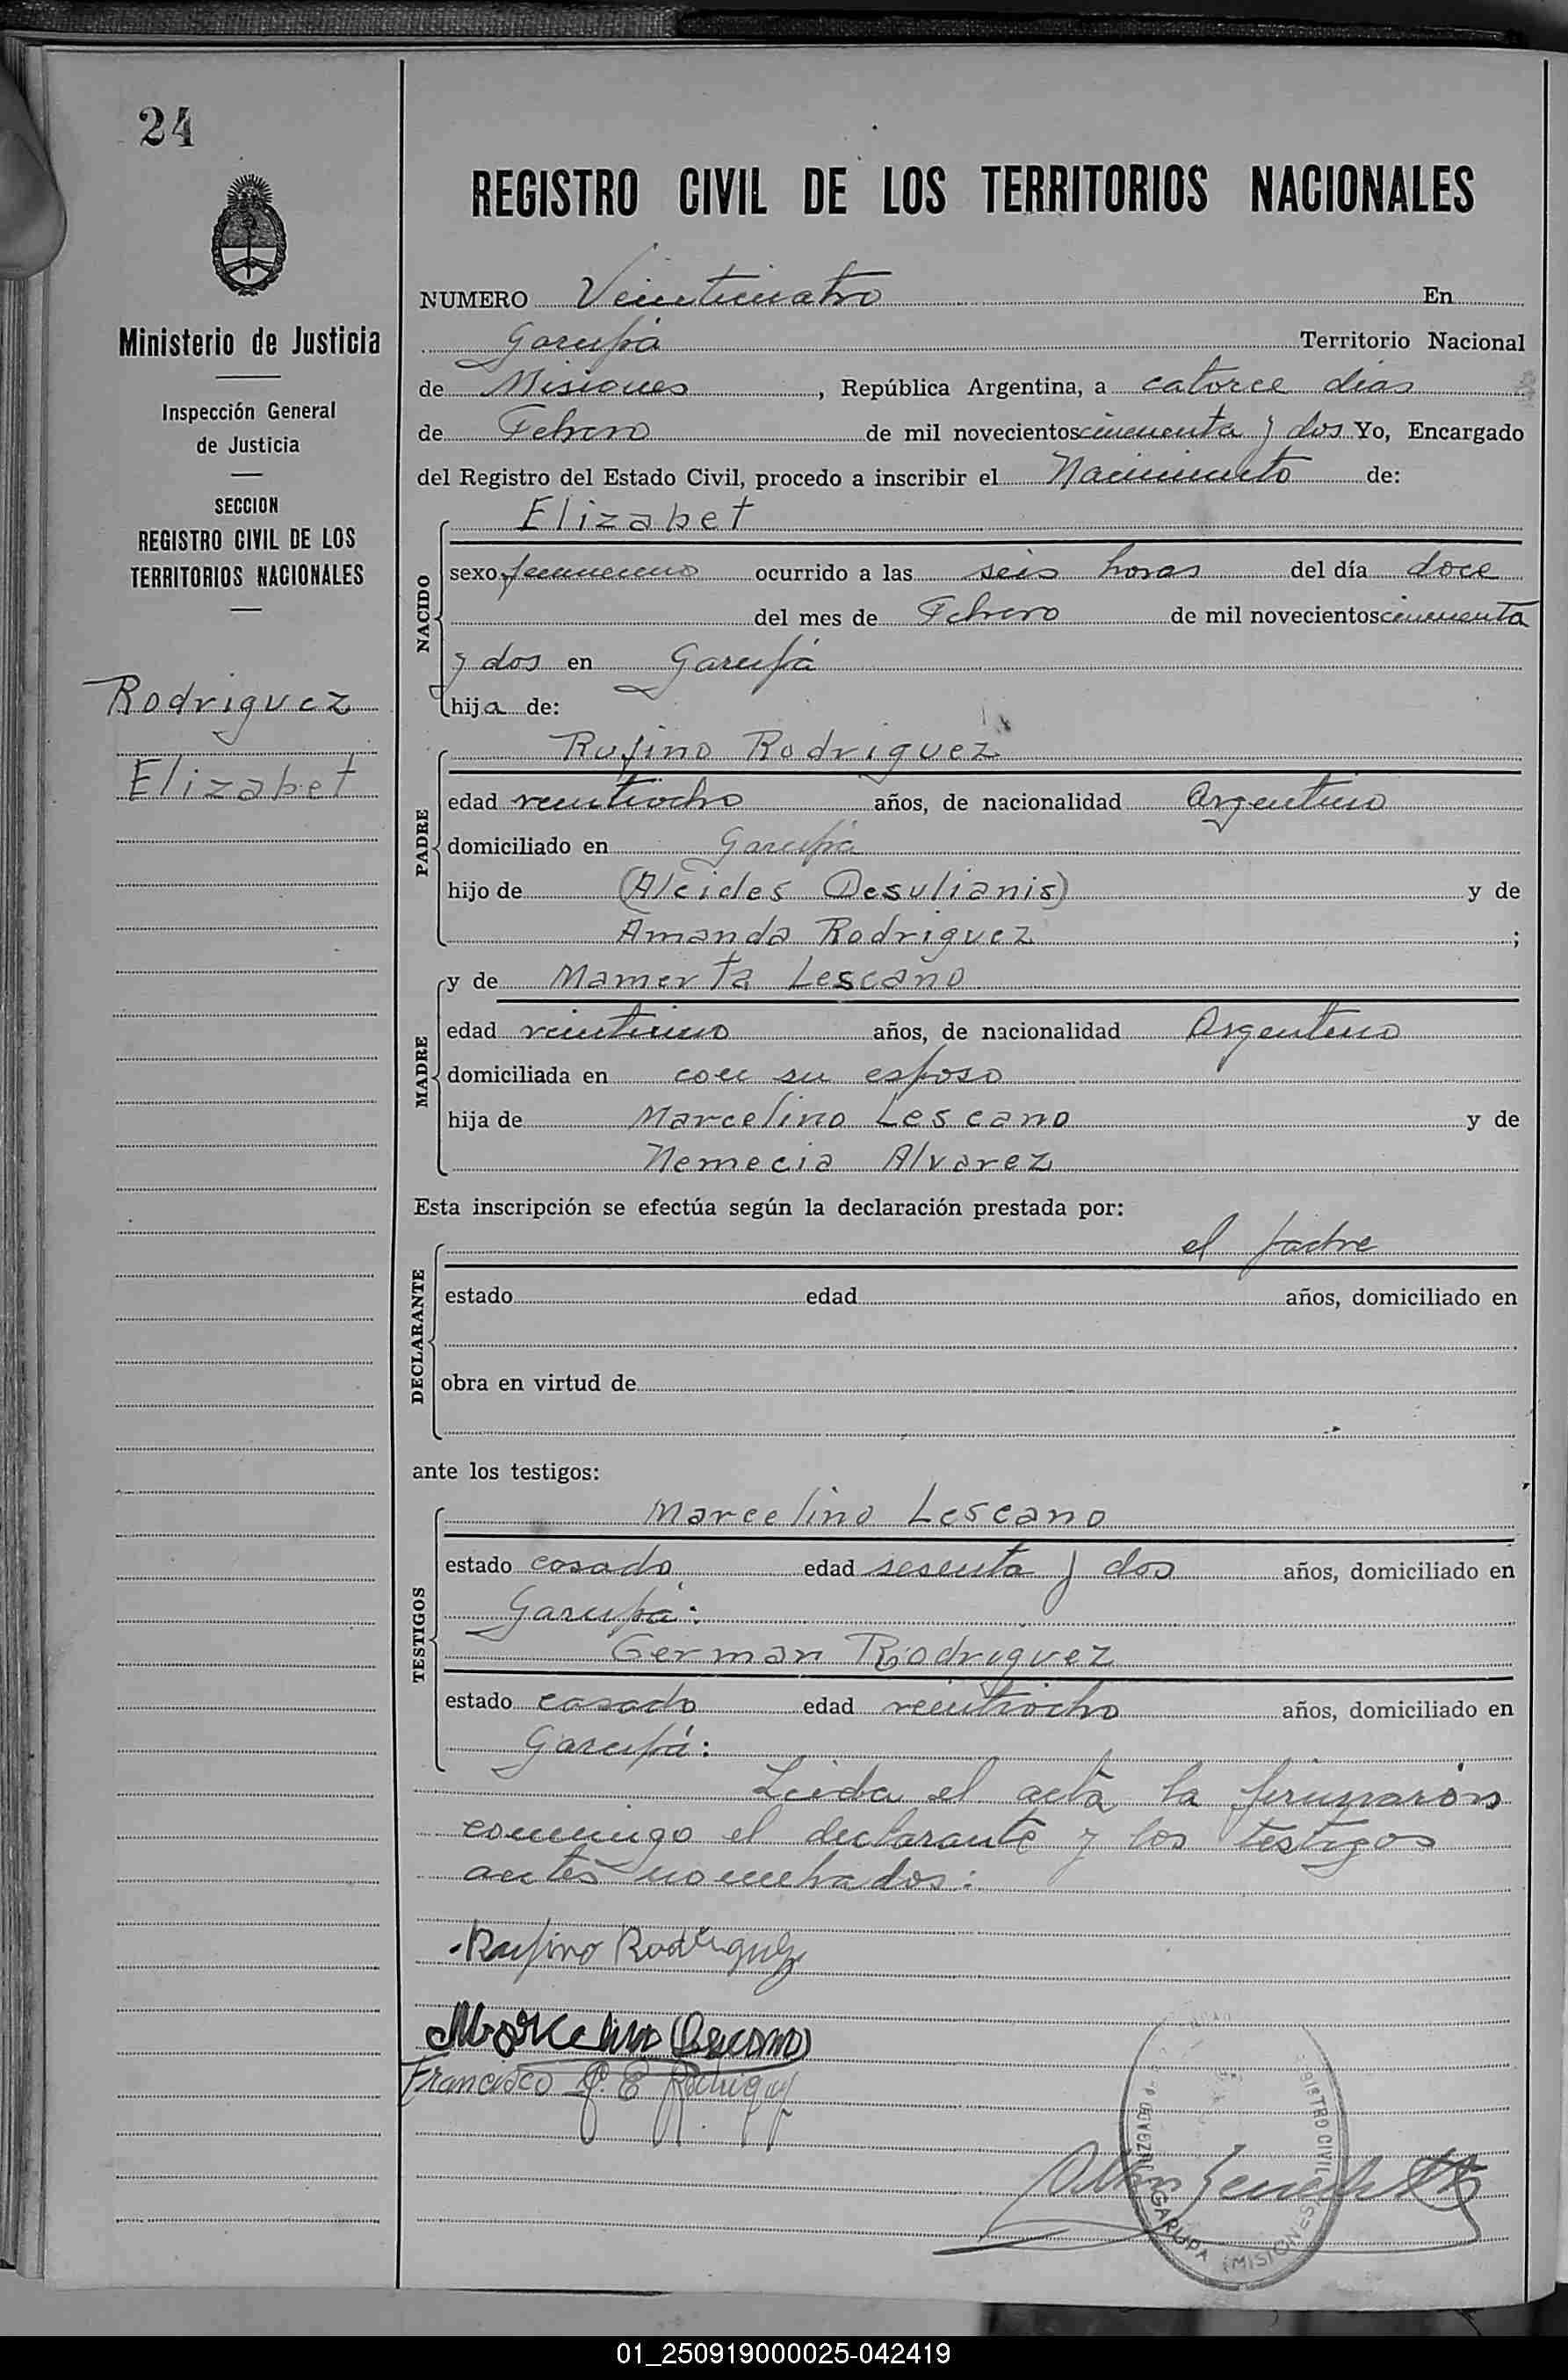 24
REGISTRO CIVIL DE LOS TERRITORIOS NACIONALES
Ministerio de Justicia
Inspección General
de Justicia
SECCION
REGISTRO CIVIL DE LOS
TERRITORIOS NACIONALES
Rodriguez
Elizabet
NUMERO Veinticuatro En
Garupá Territorio Nacional
de Misiones, República Argentina, a catorce dias
de Febrero de mil novecientos cincuenta y dos Yo, Encargado
del Registro del Estado Civil, procedo a inscribir el Nacimiento de:
NACIDO
Elizabet
sexo femenino ocurrido a las seis horas del día doce
del mes de Febrero de mil novecientos cincuenta
y dos en Garupá
hija de:
PADRE
Rufino Rodriguez
edad veintiocho años, de nacionalidad Argentino
domiciliado en Garupá
hijo de (Alcides Desulianis) y de
Amanda Rodriguez;
MADRE
y de Mamerta Lescano
edad veintiuno años, de nacionalidad Argentina
domiciliada en con su esposo
hija de Marcelino Lescano y de
Nemecia Alvarez
Esta inscripción se efectúa según la declaración prestada por:
DECLARANTE
el padre
estado edad años, domiciliado en
obra en virtud de
ante los testigos:
TESTIGOS
Marcelino Lescano
estado casado edad sesenta y dos años, domiciliado en
Garupá:
German Rodriguez
estado casado edad veintiocho años, domiciliado en
Garupá:
Leida el acta la firmarón
conmigo el declarante y los testigos
antes nombrados:
Rufino Rodriguez
Marcelino Lescano
Francisco G. E Rodriguez
REGISTRO CIVIL
JUZGADO DE PAZ
GARUPA (MISIONES)
01_250919000025-042419